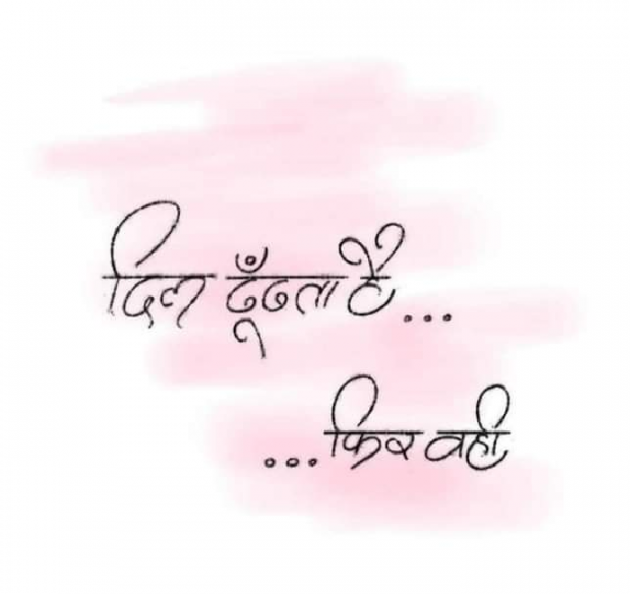 दिल ढूँढता है...
...फिर वही